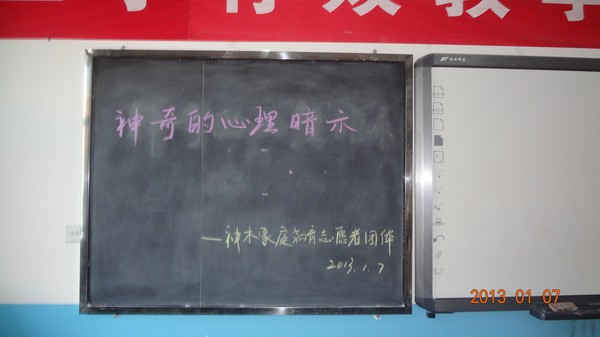 神奇的心理暗示
—神木家庭教育志愿者团体
2013.1.7
2013 01 07